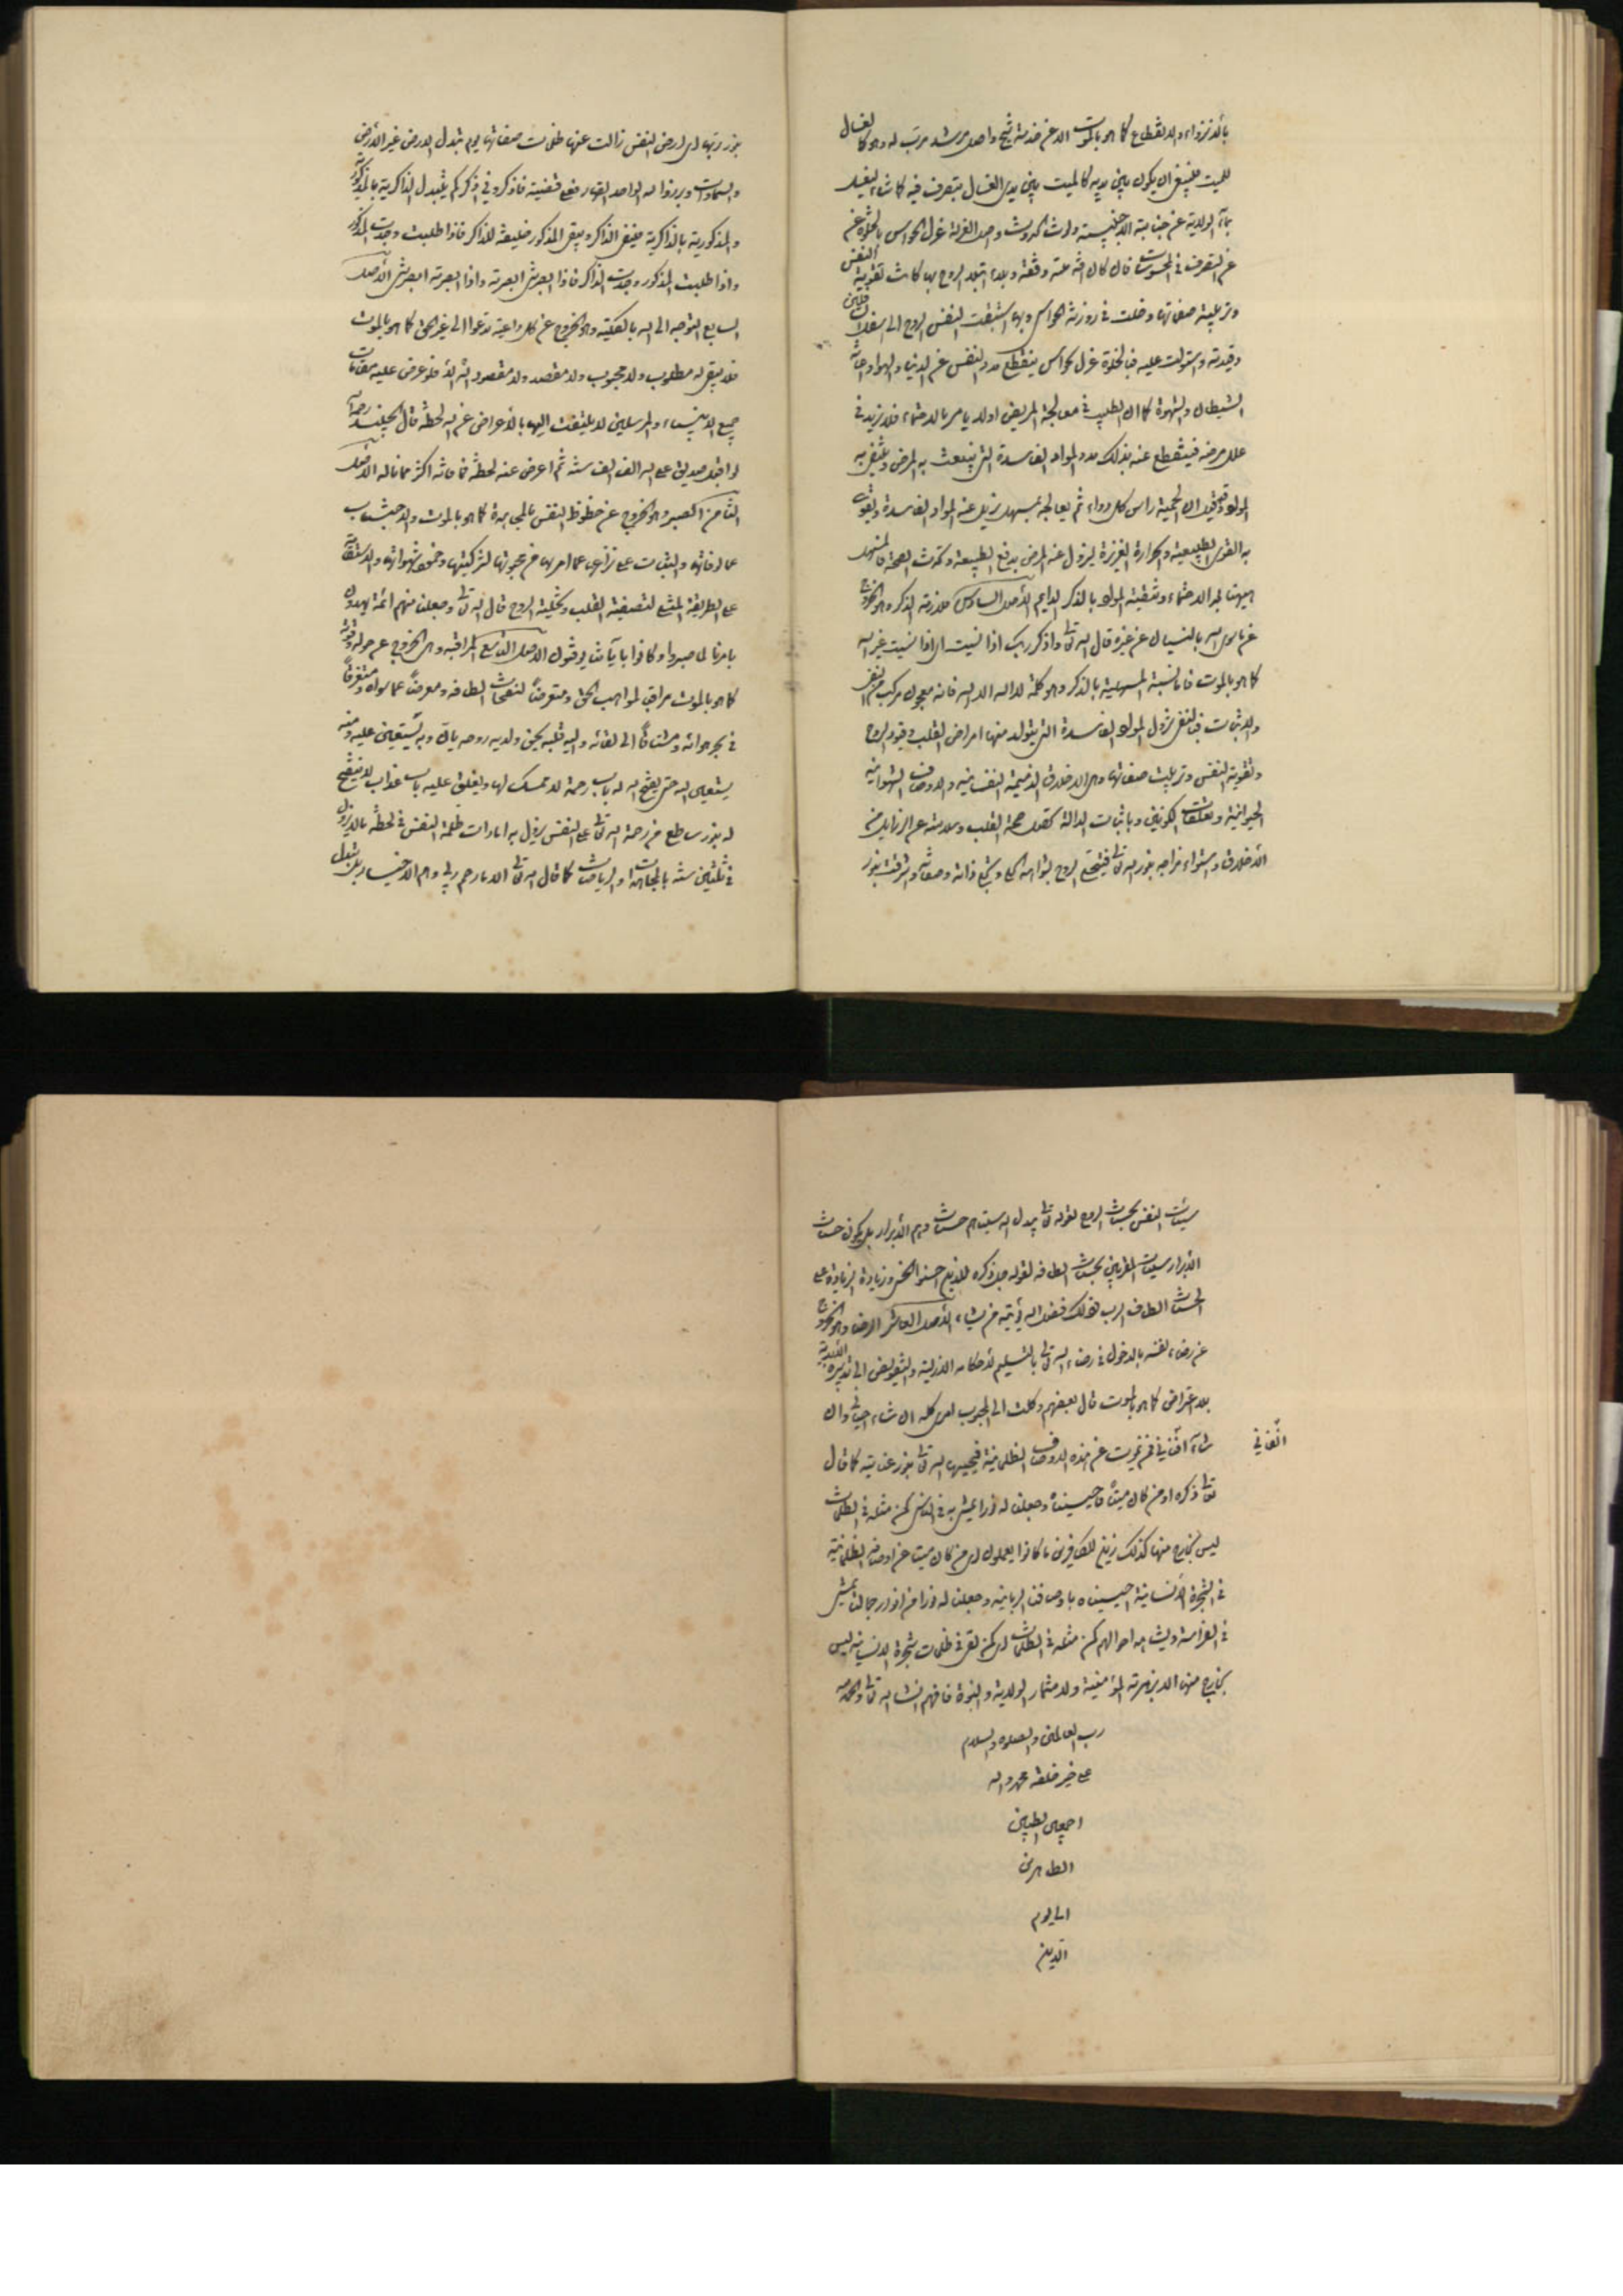 بالانزواء والانقطاع كما هو بالموت الا عن خدمة شيخ واصل مرشد مرب له وهو كالغسال
للميت فينبغي ان يكون بين يديه كالميت بين يدي الغسال يتصرف فيه كما شاء ليغسله
بماء الولاية عن جنابة الاجنبية ولوث الحدوث واصل العزلة عزل الحواس بالخلوة عن
عن التصرف في المحسوسات فان كل آفة وفتنة وبلاء ابتلى الروح بها كانت تقوية النفس
وتربية صفاتها دخلت في روزنة الحواس وبها استتبعت النفس الروح الى اسفل سافلين
وقيدته واستولت عليه فبالخلوة عزل الحواس ينقطع مدد النفس عن الدنيا والهوا واعانة
الشيطان والشهوة كما ان الطبيب في معالجة المريض اولا يامر بالاحتماء فلا يزيد في
علل مرضه فينقطع عنه بذلك مدد المواد الفاسدة التي ينبعث به المرض وينقي به
المواد وقد قيل ان الحمية راس كل دواء ثم يعالجه بمسهل يزيل عنه المواد الفاسدة ويقوى
به القوى الطبيعية والحرارة الغريزة ليزول عنه المرض بدفع الطبيعة وتحدث الصحة فالمسهل
هيهنا بعد الاحتماء وتنقية المواد بالذكر الدايم الاصل السادس ملازمة الذكر وهو الخروج
عن ما سوى الله بالنسيان عن غيره قال الله تعالى واذكر ربك اذا نسيت اى اذا نسيت غير الله
كما هو بالموت فاما نسبة المسهلية بالذكر وهو كلمة لا اله الا الله فانه معجون مركب من النفي
والاثبات فبالنفي تزول المواد الفاسدة التي يتولد منها امراض القلب وقيود الروح
وتقوية النفس وتربيت صفاتها وهي الاخلاق الذميمة النفسانية والاوصاف الشهوانية
الحيوانية وتعلقات الكونين وباثبات الا الله تحصل صحة القلب وسلامته عن الرذايل من
الاخلاق واستواء مزاجه بنور الله تعالى فيتجلى الروح بشواهد الحق وتجلي ذاته وصفاته واشرقت بنور
بنور ربها اى ارض النفس زالت عنها ظلمات صفاتها يوم تبدل الارض غير الارض
والسماوات وبرزوا لله الواحد القهار فعلى قضية فاذكروني اذكركم يتبدل الذاكرية بالمذكورية
والمذكورية بالذاكرية فيفنى الذاكر ويبقى المذكور خليفة للذاكر فاذا طلبت وجدت المذكور
واذا طلبت المذكور وجدت الذاكر فاذا ابصرتني ابصرته واذا ابصرته ابصرتني الاصل
السابع التوجه الى الله بالكلية وهو الخروج عن كل داعية تدعوا الى غير الحق كما هو بالموت
فلا يبقى له مطلوب ولا محبوب ولا مقصد ولا مقصود الا الله فلو عرض عليه مقامات
جميع الانبياء والمرسلين لا يلتفت اليها بالاعراض عن الله لحظة قال الجنيد رحمه الله
لو اقبل صديق على الله الف الف سنة ثم اعرض عنه لحظة فما فاته اكثر مما ناله الاصل
الثامن الصبر وهو الخروج عن حظوظ النفس بالمجاهدة كما هو بالموت والاجتناب
عن مالوفاتها والثبات على عما امرها عن محبوبها لتزكيتها وخمود شهواتها والاستقامة
على الطريقة المثلى لتصفية القلب وتحلية الروح قال الله تعالى وجعلنا منهم ائمة يهدون
بامرنا لما صبروا وكانوا باياتنا يوقنون الاصل التاسع المراقبة وهي الخروج عن حوله وقوته
كما هو بالموت مراقبا لمواهب الحق ومتعرضا لنفحات الطافه ومعرضا عما سواه ومستغرقا
في بحر هوائه ومشتاقا الى لقائه واليه قلبه يحن ولديه روحه يان وبه يستعين عليه ومنه
يستغيث اليه حتى يفتح الله له باب رحمة لا ممسك لها ويغلق عليه باب عذاب لا مفتح
له بنور ساطع من رحمة الله تعالى على النفس يزول به امارات ظلمة النفس في لحظة ما لا يزول
في ثلثين سنة بالمجاهدات والرياضات كما قال الله تعالى الا ما رحم ربي وهم الاخيار بل يتبدل
سيئات النفس بحسنات الروح لقوله تعالى يبدل الله سيئاتهم حسنات وهم الابرار بل يكون حسنات
الابرار سيئات المقربين بحسنات الطافه لقوله جل ذكره للذين احسنوا الحسنى وزيادة الزيادة على
الحسنات الطاف الرب ذلك فضل الله يؤتيه من يشاء الاصل العاشر الرضا وهو الخروج
عن رضاء نفسه بالدخول في رضاء الله تعالى بالتسليم لاحكامه الازلية والتفويض الى تدبيره الابدية
بلا اعتراض كما هو بالموت قال بعضهم وكلت الى المحبوب امري كله ان شاء احياني وان
شاء افناني فمن يموت عن هذه الاوصاف الظلمانية فيحييه الله تعالى بنور عنايته كما قال
اتلفاني
تعالى ذكره اومن كان ميتا فاحييناه وجعلنا له نورا يمشي به في الناس كمن مثله في الظلمات
ليس بخارج منها كذلك زين للكافرين ما كانوا يعملون اى من كان ميتا عن اوصافه الظلمانية
في الشجرة الانسانية احييناه باوصافنا الربانية وجعلنا له نورا من انوار جمالنا يمشي
في الفراسة ويشاهد احوالهم كمن مثله في الظلمات اى كمن بقي في ظلمات شجرة الانسانية ليس
بخارج منها الا بزهرته المؤمنية ولا مثمار الولاية والنبوة فافهم انشاء الله تعالى والحمد لله
رب العالمين والصلوه والسلام
على خير خلقه محمد واله
اجمعين الطيبين
الطاهرين
الى يوم
الدين